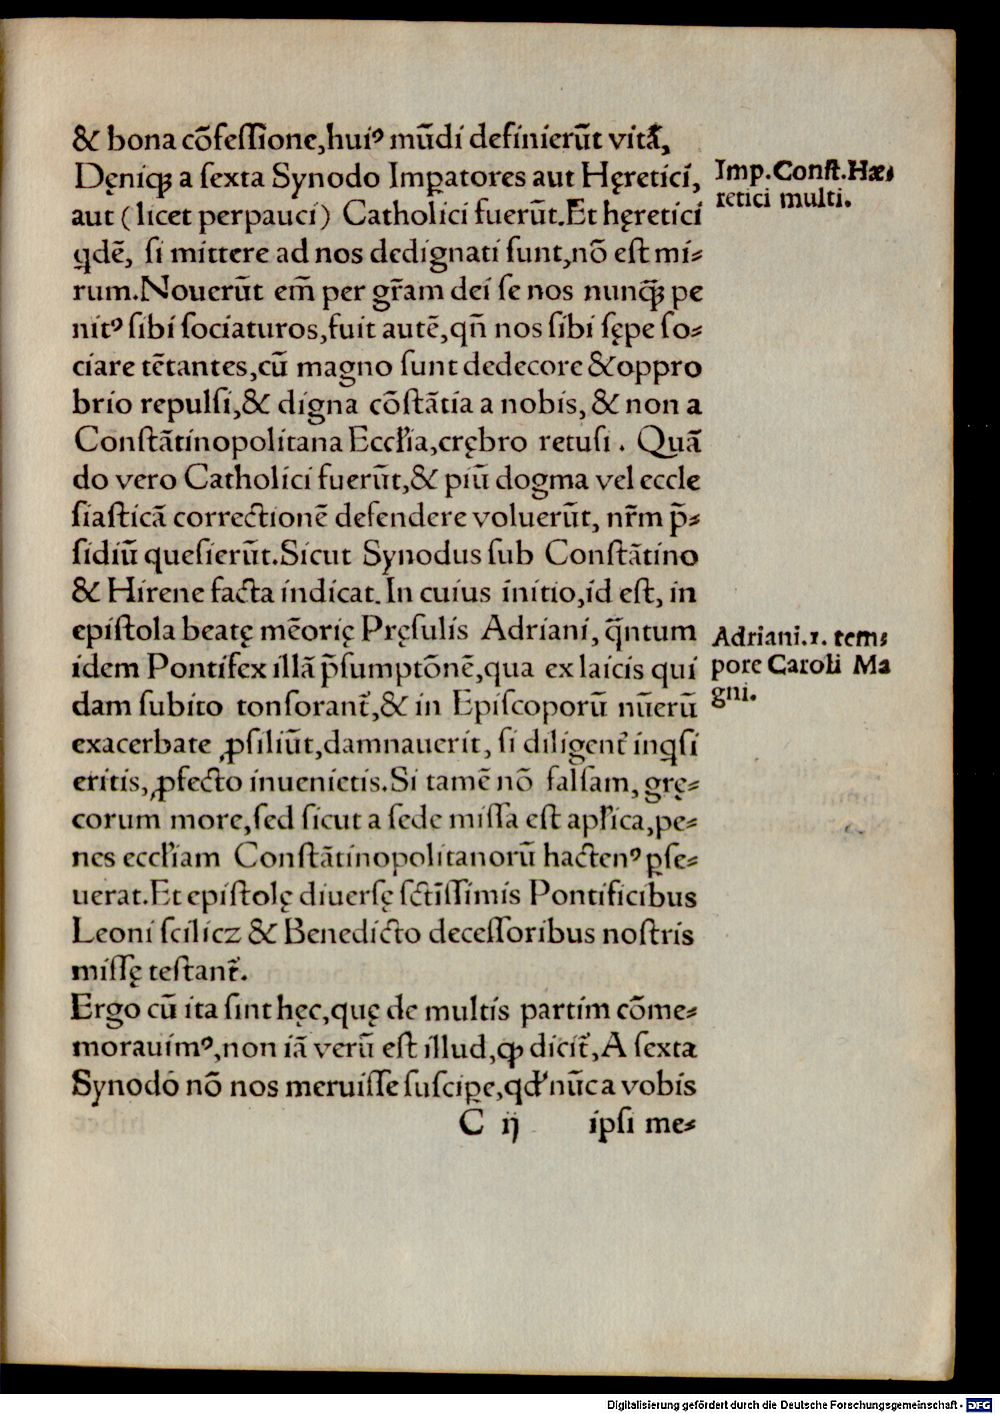 & bona cõfeſſione,huiꝰ mũdi definierũt vitã,
Dęniqꝫ a ſexta Synodo Imꝑatores aut Hęretici,
aut (licet perpauci) Catholici fuerũt.Et hęretici
qdẽ, ſi mittere ad nos dedignati ſunt,nõ eſt mi⸗
rum.Nouerũt em̃ per gr̃am dei ſe nos nunqꝫ pe
nitꝰ ſibi ſociaturos,fuit autẽ,qñ nos ſibi ſępe ſo⸗
ciare tẽtantes,cũ magno ſunt dedecore &oppro
brio repulſi,& digna cõſtãtia a nobis, & non a
Conſtãtinopolitana Eccľia,crębro retuſi . Quã
do vero Catholici fuerũt,& piũ dogma vel eccle
ſiaſticã correctionẽ defendere voluerũt, nr̃m p̃⸗
ſidiũ queſierũt.Sicut Synodus ſub Conſtãtino
& Hirene facta indicat.In cuius initio,id eſt, in
epiſtola beatę mẽorię Pręſulis Adriani, q̃ntum
idem Pontifex illã p̃ſumptõnẽ,qua ex laicis qui
dam ſubito tonſorant᷑,& in Epiſcoporũ nũerũ
exacerbate ꝓſiliũt,damnauerit, ſi diligent᷑ inqſi
eritis,ꝓfecto inuenietis.Si tamẽ nõ falſam, grę⸗
corum more,ſed ſicut a ſede miſſa eſt apľica,pe⸗
nes eccľiam Conſtãtinopolitanorũ hactenꝰ ꝑſe⸗
uerat.Et epiſtolę diuerſę ſctĩſſimis Pontificibus
Leoni ſcilicz & Benedicto deceſſoribus noſtris
miſſę teſtant᷑.
Ergo cũ ita ſint hęc,quę de multis partim cõme⸗
morauimꝰ,non iã verũ eſt illud,ꝙ dicit᷑,A ſexta
Synodo nõ nos meruiſſe ſuſciꝑe,qď nũca vobis
C ij ipſi me⸗
Imp.Conſt.Hæ⸗
retici multi.
Adriani.1. tem⸗
pore Caroli Ma
gni.
Digitalisierung gefördert durch die Deutsche Forschungsgemeinschaft - DFG